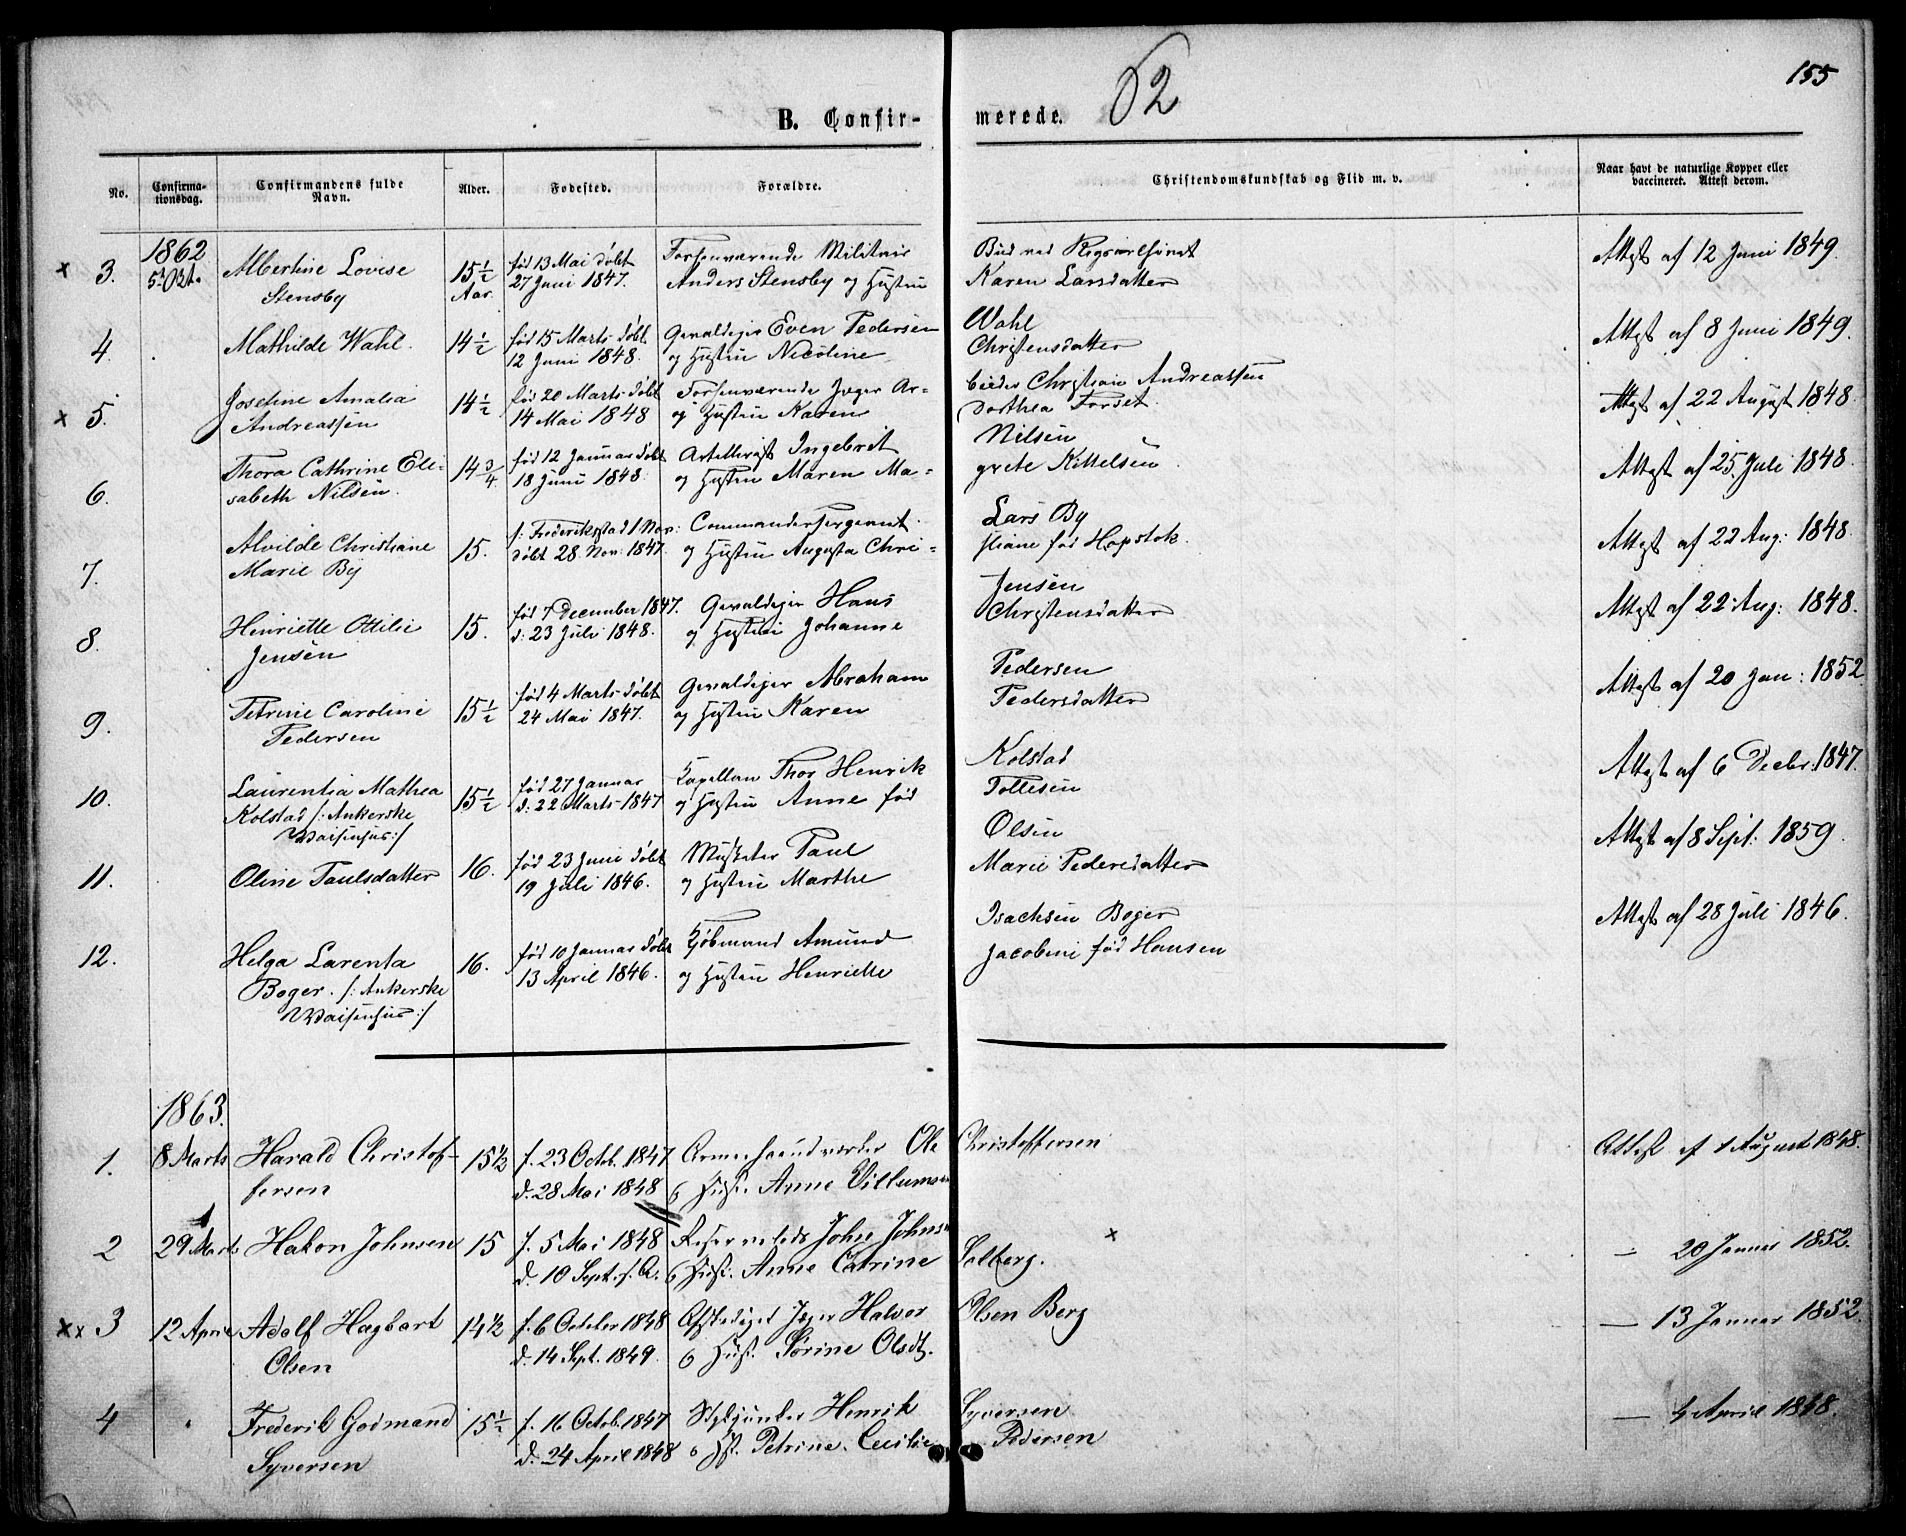 155
62
B. Confir- merede.
No. Confirma-tionsdag. Confirmandens fulde Navn. Alder. Fødested. Forældre. Christendomskundskab og Flid m. v. Naar havt de naturlige Kopper eller vaccineret. Attest derom.
1862
x 3. 5 Okt. Albertine Lovise 15 1/2 født 13 Mai døbt Forhenværende Militair Bud ved Attest af 12 Juni 1849.
Stensby Aar. 27 Juni 1847. Anders Stensby og Hustru Karen Larsdatter
4. . Mathilde Wahl. 14 1/2 født 15 Marts døbt Gevaldiger Even Pedersen Wahl Attest af 8 Juni 1849.
12 Juni 1848. og Hustru Nicoline Christensdatter
x 5. Josefine Amalia 14 1/2 født 20 Marts døbt Forhenværende Jæger Ar- beider Christian Andreassen Attest af 22 August 1848.
Andreassen 14 Mai 1848 og Hustru Karen Dorthea Forset.
6. Thora Cathrine Ele- 14 3/4 født 12 Januar døbt Artillerist Ingebrit Nilsen Attest af 25. Juli 1848.
sabeth Nilsen. 18 Juni 1848. og Hustru Maren Ma- grete Kittelsen
7. Alvilde Christiane 15. f. Frederiksstad 1 Nov: Commandersergeant Lars By Attest af 22 Aug: 1848.
Marie By døbt 28. Nov: 1847. og Hustru Augusta Chri- stiane født Hopstok.
8. Henriette Ottilie 15. født 7 December 1847. Gevaldiger Hans Jensen Attest af 22 Aug: 1848.
Jensen d: 23 Juli 1848. og Hustru Johanne Christensdatter
9. Petrine Caroline 15 1/2 født 4 Marts døbt Gevaldiger Abraham Pedersen Attest af 20 Jan: 1852.
Pedersen 24 Mai 1847. og Hustru Karen Pedersdatter
10. Laurentia Mathea 15 1/2 født 27 Januar Kapellan Thor Henrik Kolstad Attest af 6 Decbr. 1847.
Kolstad /: Ankerske d: 22 Marts 1847 og Hustru Anne født Tollesen
Waisenhus :/
11. Oline Paulsdatter 16. født 23 Juni døbt Musketer Paul Olsen Attest af 8 Sept: 1859.
19 Juli 1846. og Hustru Marthe Marie Pedersdatter
12. Helga Larenta 16. født 10 Januar døbt Kjøbmand Amund Isachsen Boger Attest af 28 Juli 1846.
Boger. /: Ankerske 13 April 1846. og Hustru Henriette Jacobine født Hansen
Waisenhus :/
1863.
1. 8 Marts Harald Christof- 15 1/2 f. 23 Octob. 1847 Ole Christoffersen Attest af 1 August 1848.
fersen d. 28 Mai 1848 o Hust. Anne Villumsen
2 29 Marts Hakon Johnsen 15 f. 5 Mai 1848 John Johnsen x — 20 Januar 1852.
d. 10 Sept. s. A. o Hust. Anne Catrine Solberg.
xx 3 12 April Adolf Hagbart 14 1/2 f. 6 October 1848 Afskediget Jæger Halvor Olsen Berg — 13 Januar 1852.
Olsen d. 14 Sept. 1849. o Hust. Sørine Olsdt.
4 " Frederik Godmand 15 1/2 f. 16 Octob. 1847 Stykjunker Henrik Syversen — 4 April 1848.
Syversen d. 24 April 1848 o Hst. Petrine Cecilie Pedersen